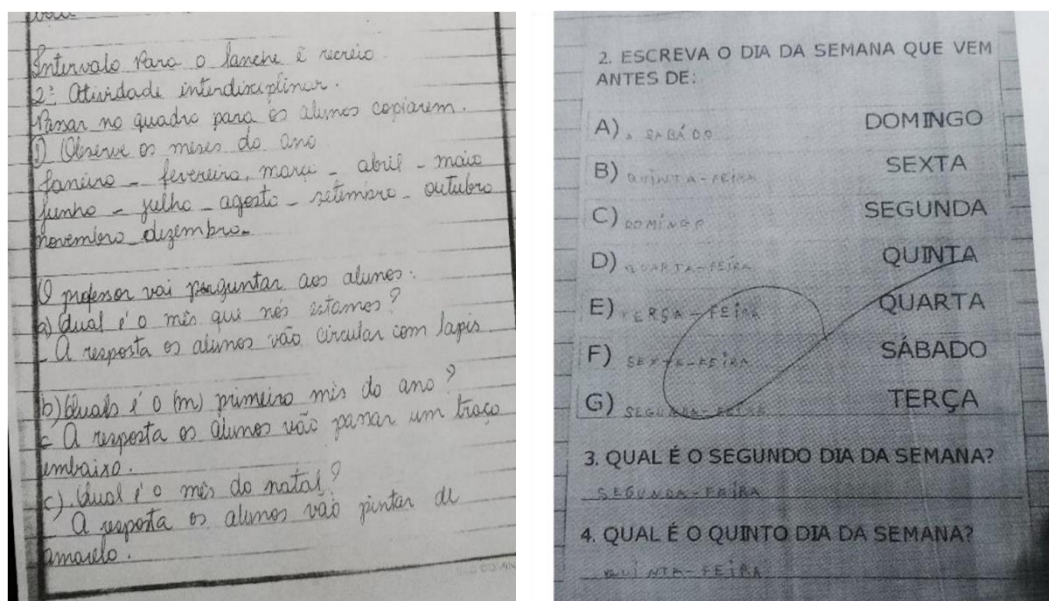 Intervalo Para o lanche e recreio.
2ª Atividade interdisciplinar.
Passar no quadro para os alunos copiarem.
① Observe os meses do ano
Janeiro - fevereiro, março - abril - maio
Junho - julho - agosto - setembro - outubro
novembro - dezembro.
O professor vai perguntar aos alunos:
a) Qual é o mês que nós estamos?
- A resposta os alunos vão circular com lapis
b) Quals é o (m) primeiro mês do ano?
- A resposta os alunos vão passar um traço
embaixo.
c). Qual é o mês do natal?
- A resposta os alunos vão pintar de
amarelo.
2. ESCREVA O DIA DA SEMANA QUE VEM
ANTES DE:
A) SABÁDO DOMINGO
B) QUINTA-FEIRA SEXTA
C) DOMINGO SEGUNDA
D) QUARTA-FEIRA QUINTA
E) TERÇA-FEIRA QUARTA
F) SEXTA-FEIRA SÁBADO
G) SEGUNDA-FEIRA TERÇA
3. QUAL É O SEGUNDO DIA DA SEMANA?
SEGUNDA-FAIRA
4. QUAL É O QUINTO DIA DA SEMANA?
QUINTA-FEIRA